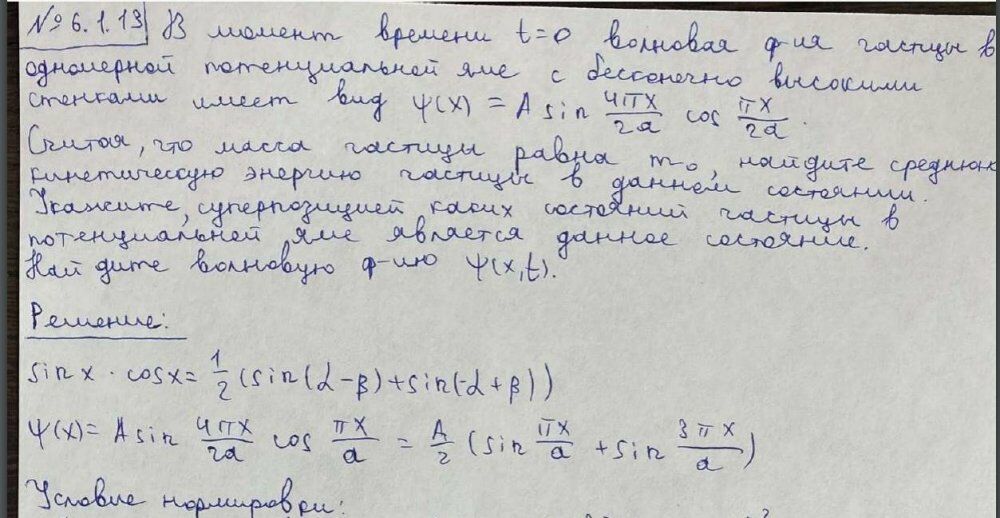 № 6.1.13 В момент времени t=0 волновая ф-ия частицы в
одномерной потенциальной яме с бесконечно высокими
стенками имеет вид Ψ(x) = A sin 4πx/2a cos πx/2a.
Считая, что масса частицы равна m₀, найдите среднюю
кинетическую энергию частицы в данном состоянии.
Укажите, суперпозицией каких состояний частицы в
потенциальной яме является данное состояние.
Найдите волновую ф-ию Ψ(x,t).
Решение:
sin x · cos x = 1/2 (sin(α-β)+sin(-α+β))
Ψ(x)= A sin 4πx/2a cos πx/a = A/2 (sin πx/a + sin 3πx/a)
Условие нормировки: